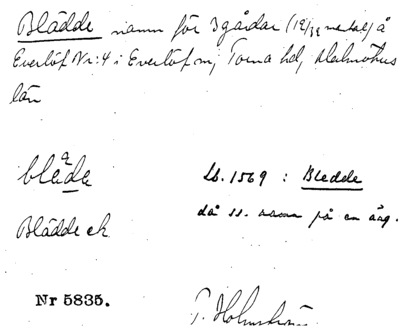 Blädde namn för 3 gårdar (12/32 mantal) å
Everlöf Nr: 4 i Everlöf sn, Torna hd, Malmöhus
län
blǎda
Lb. 1569 : Bledde
då ss. namn på en äng.
Blädde ek
Nr 5835.
T. Holmström